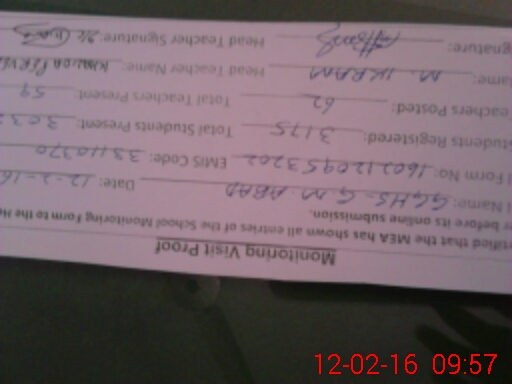 Monitoring Visit Proof
tified that the MEA has shown all entries of the School Monitoring Form to the He
er before its online submission.
l Name: GGHS - G M ABAD Date: 12-2-16
l Form No: 16021209453202 EMIS Code: 33110370
Students Registered: 3175 Total Students Present: 303
Teachers Posted: 62 Total Teachers Present: 59
ame: M. IKRAM Head Teacher Name: KHALIDA PERVE
ignature: Head Teacher Signature:
12-02-16 09:57